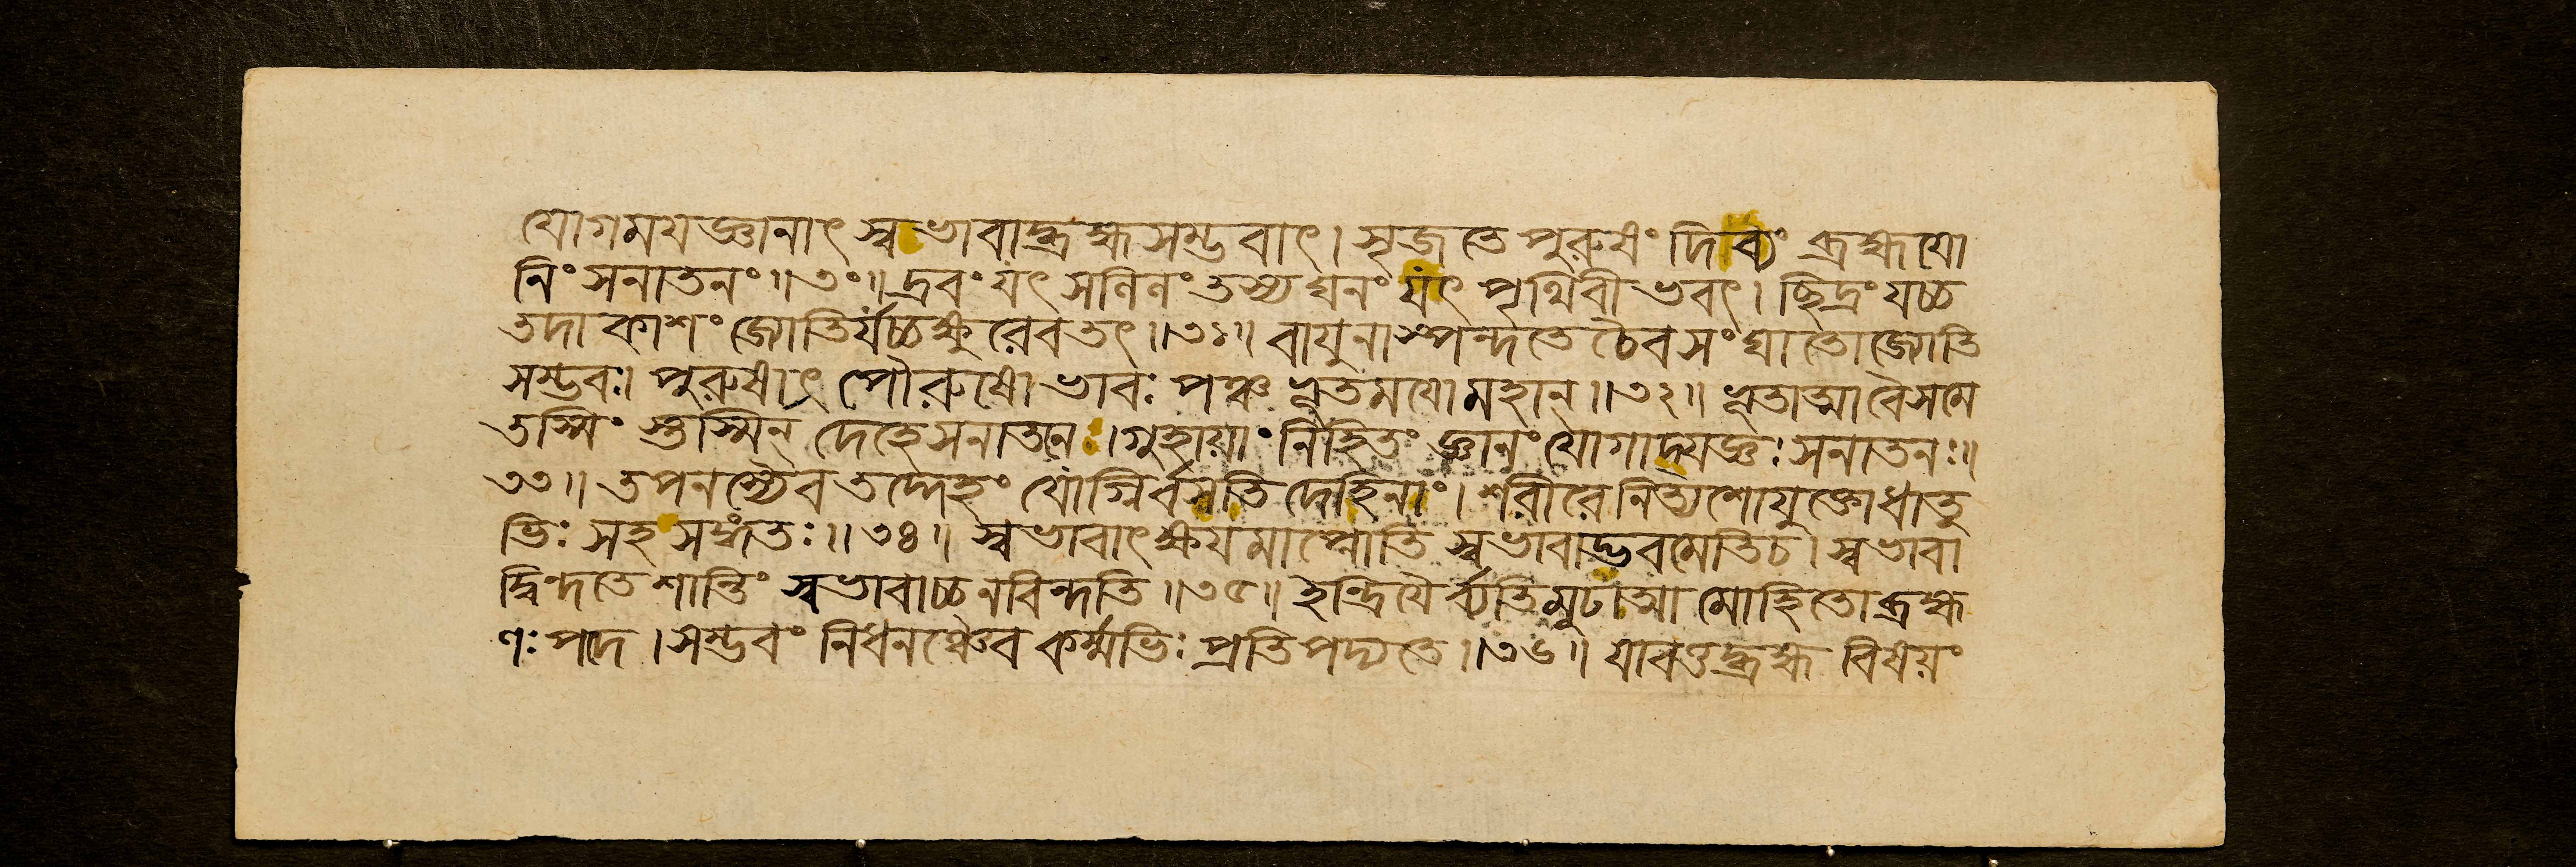 যোগময়জ্ঞানাৎ স্বভাবাদ্ব্রহ্মসম্ভবাৎ। সৃজতে পুরুষং দিব্যং ব্রহ্মযো
নিং সনাতনং॥৩০॥ দ্রবং যৎ সলিলং তস্য ঘনং যৎ পৃথিবী ভবৎ। ছিদ্রং যচ্চ
তদাকাশং জ্যোতির্যচ্চক্ষুরেবতৎ॥৩১॥ বায়ুনা স্পন্দতে চৈব সংঘাতো জ্যোতি
সম্ভবঃ। পুরুষাৎ পৌরুষো ভাবঃ পঞ্চভূতময়ো মহান্॥৩২॥ ভূতাত্মা বৈ সমে
তস্মিং স্তস্মিন্ দেহে সনাতনঃ। গুহায়াং নিহিতং জ্ঞানং যোগাদ্যজ্ঞঃ সনাতনঃ॥
৩৩॥ তপনস্যৈব তদ্দেহং যোগ্নির্বসতি দেহিনাং। শরীরে নিত্যশো যুক্তো ধাতু
ভিঃ সহ সঙ্গতঃ॥৩৪॥ স্বভাবাৎক্ষয়মাপ্নোতি স্বভাবাদ্ভবমেতি চ। স্বভাবা
দ্বিন্দতে শান্তিং স্বভাবাচ্চ ন বিন্দতি॥৩৫॥ ইন্দ্রিয়ৈর্ব্যতিমূঢাত্মা মোহিতো ব্রহ্ম
ণঃ পদে। সম্ভবং নিধনঞ্চৈব কর্ম্মভিঃ প্রতিপদ্যতে॥৩৬॥ যাবত্তদ্ব্রহ্ম বিষয়ং